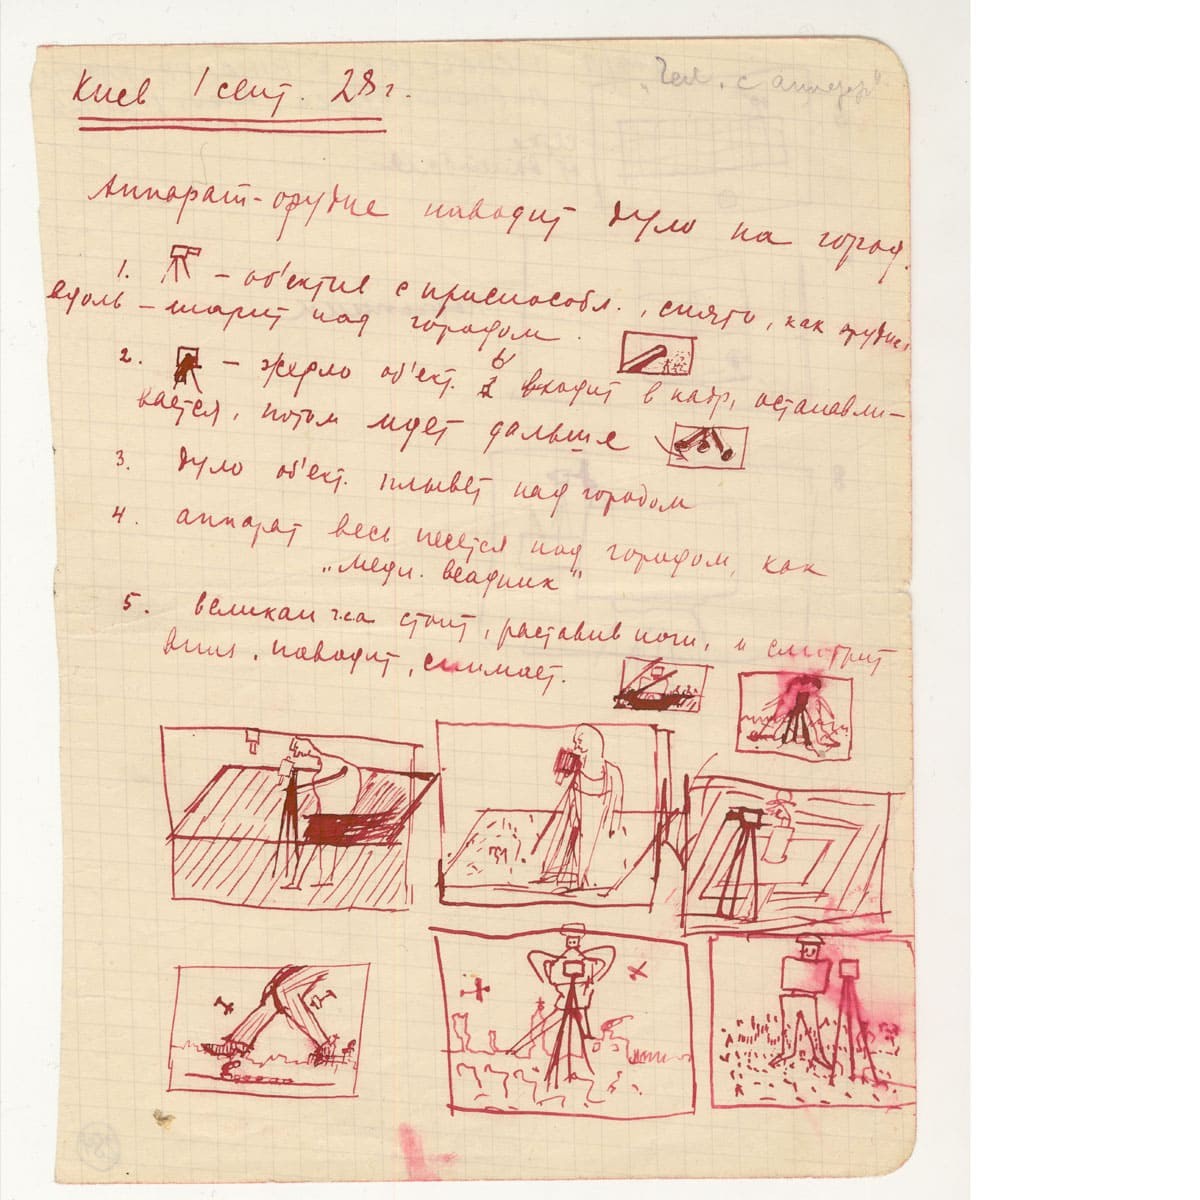 Киев 1 сент. 28 г.
„Чел. с аппар."
Аппарат-орудие наводит дуло на город.
1. – об'ектив с приспособл., снято, как орудие,
вдоль – шарит над городом.
2. – жерло об'ект. входит в кадр, останавли-
вается, потом идет дальше
3. дуло об'ект. плывет над городом
4. аппарат весь несется над городом, как
„медн. всадник"
5. великан стоит, раставив ноги, и смотрит
вниз, наводит, снимает.